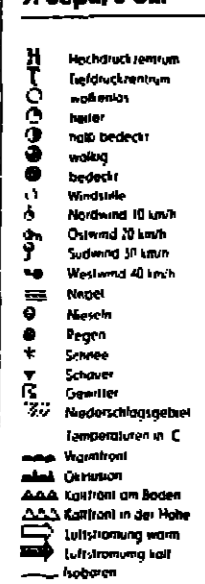 Hochdruckzentrum
Tiefdruckzentrum
wolkenlos
heiter
halb bedeckt
wolkig
bedeckt
Windstille
Nordwind 10 km/h
Ostwind 20 km/h
Südwind 30 km/h
Westwind 40 km/h
Nebel
Nieseln
Regen
Schnee
Schauer
Gewitter
Niederschlagsgebiet
Temperaturen in C
Warmfront
Okklusion
Kaltfront am Boden
Kaltfront in der Höhe
Luftströmung warm
Luftströmung kalt
Isobaren